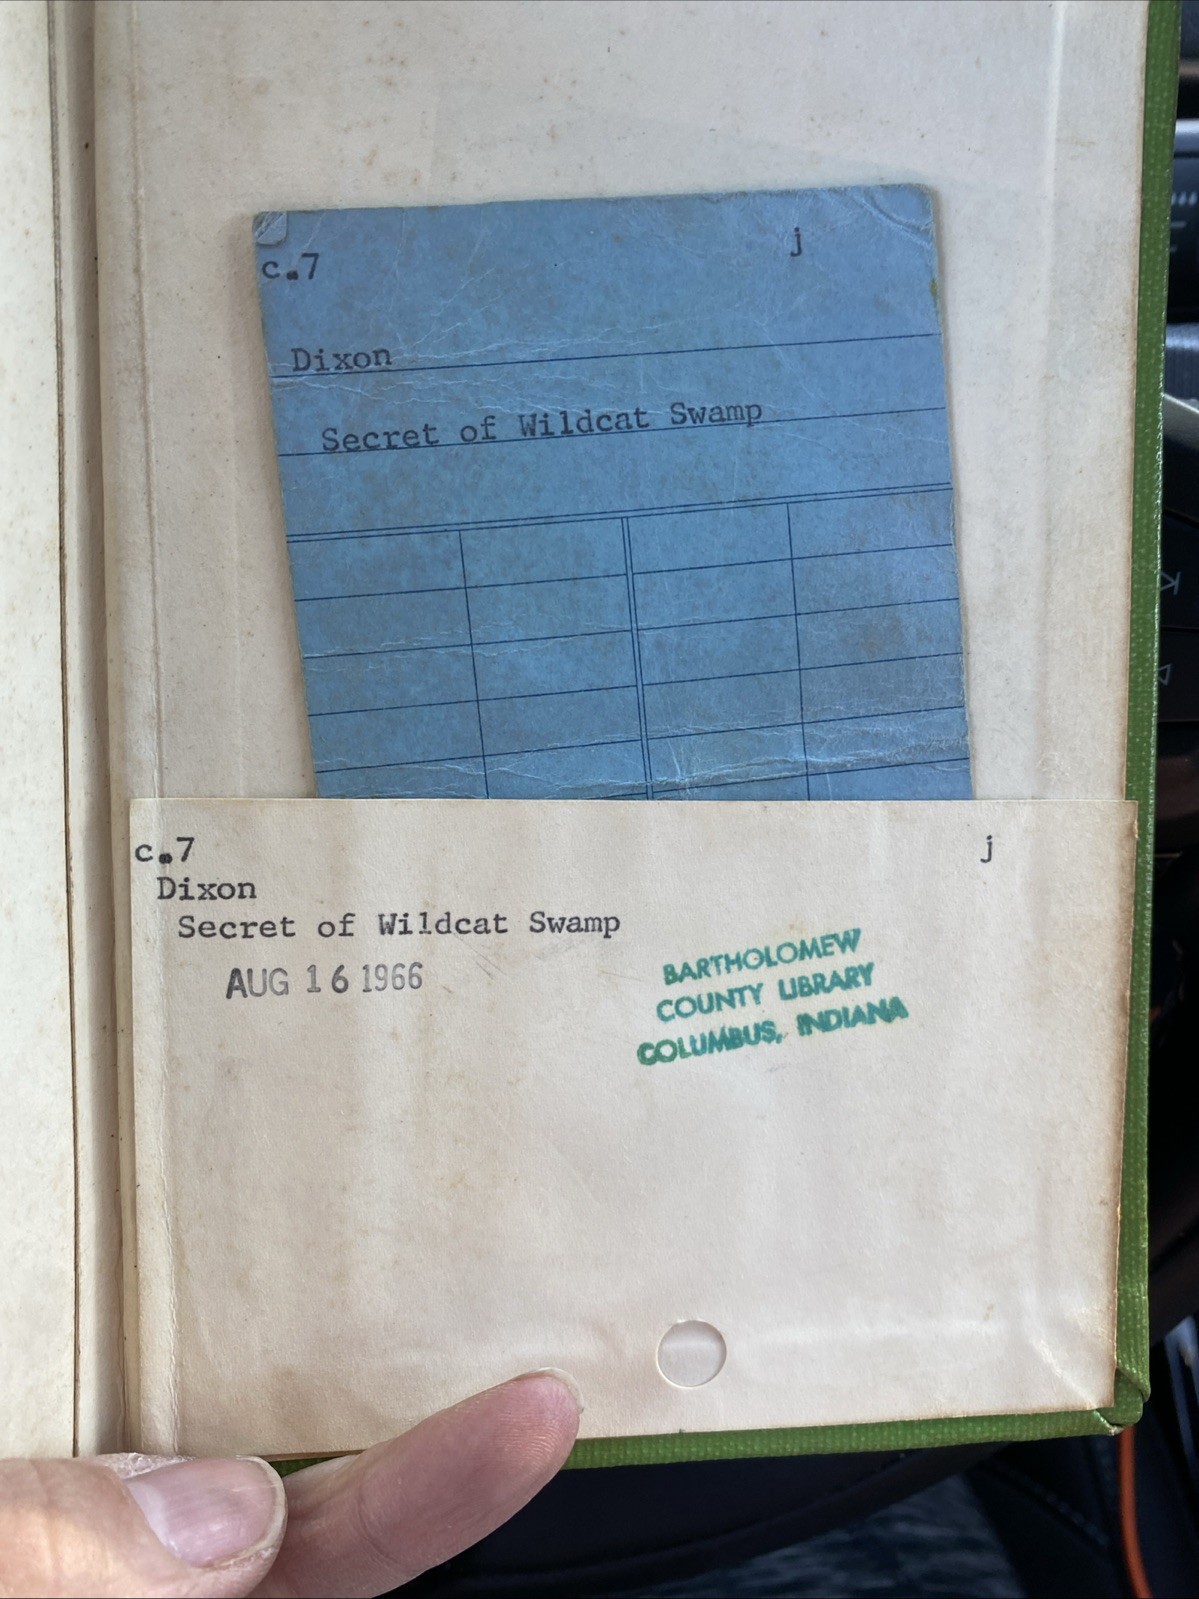 c.7 j
Dixon
Secret of Wildcat Swamp
c.7 j
Dixon
Secret of Wildcat Swamp
AUG 16 1966
BARTHOLOMEW
COUNTY LIBRARY
COLUMBUS, INDIANA